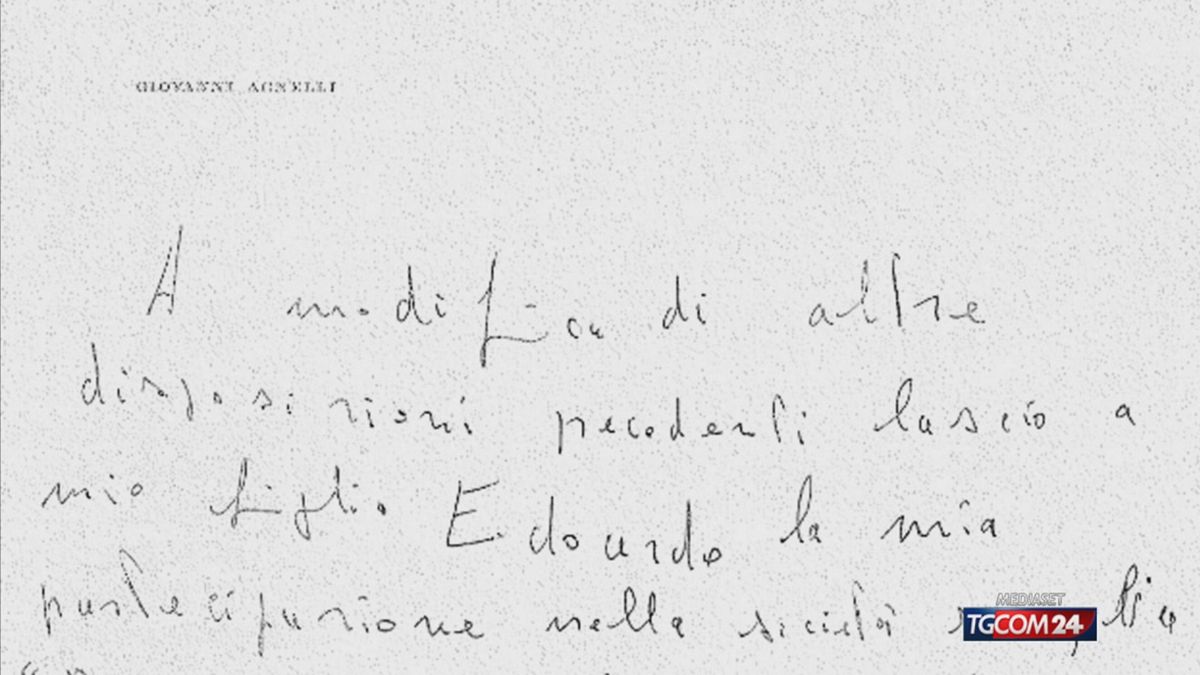 GIOVANNI AGNELLI
A modifica di altre
disposizioni precedenti lascio a
mio figlio Edoardo la mia
partecipazione nella società
MEDIASET
TGCOM24